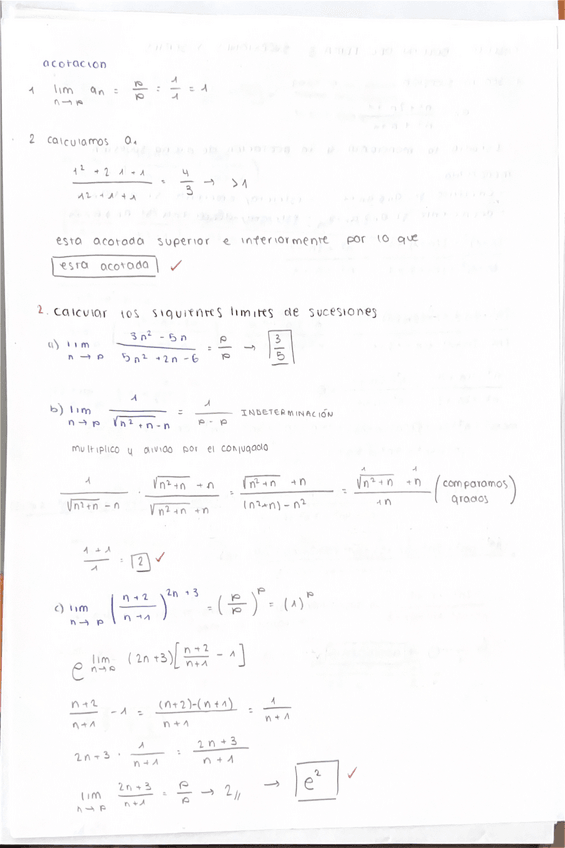 acotacion
1 lim n→∞ an = ∞/∞ = 1/1 = 1
2 calculamos a1
(1² + 2·1 + 1)/(1² + 1 + 1) = 4/3 → >1
esta acotada superior e inferiormente por lo que
esta acotada ✓
2. calcular los siguientes limites de sucesiones
a) lim n→∞ (3n² - 5n)/(5n² + 2n - 6) = ∞/∞ → 3/5
b) lim n→∞ 1/(√(n²+n) - n) = 1/(∞ - ∞) INDETERMINACIÓN
multiplico y divido por el conjugado
1/(√(n²+n) - n) · (√(n²+n) + n)/(√(n²+n) + n) = (√(n²+n) + n)/((n²+n) - n²) = (√(n²+n) + n)/1n (comparamos grados)
(1+1)/1 = 2 ✓
c) lim n→∞ ((n+2)/(n+1))^(2n+3) = (∞/∞)^∞ = (1)^∞
e^lim n→∞ (2n+3)[(n+2)/(n+1) - 1]
(n+2)/(n+1) - 1 = ((n+2)-(n+1))/(n+1) = 1/(n+1)
2n+3 · 1/(n+1) = (2n+3)/(n+1)
lim n→∞ (2n+3)/(n+1) = ∞/∞ → 2// → e² ✓